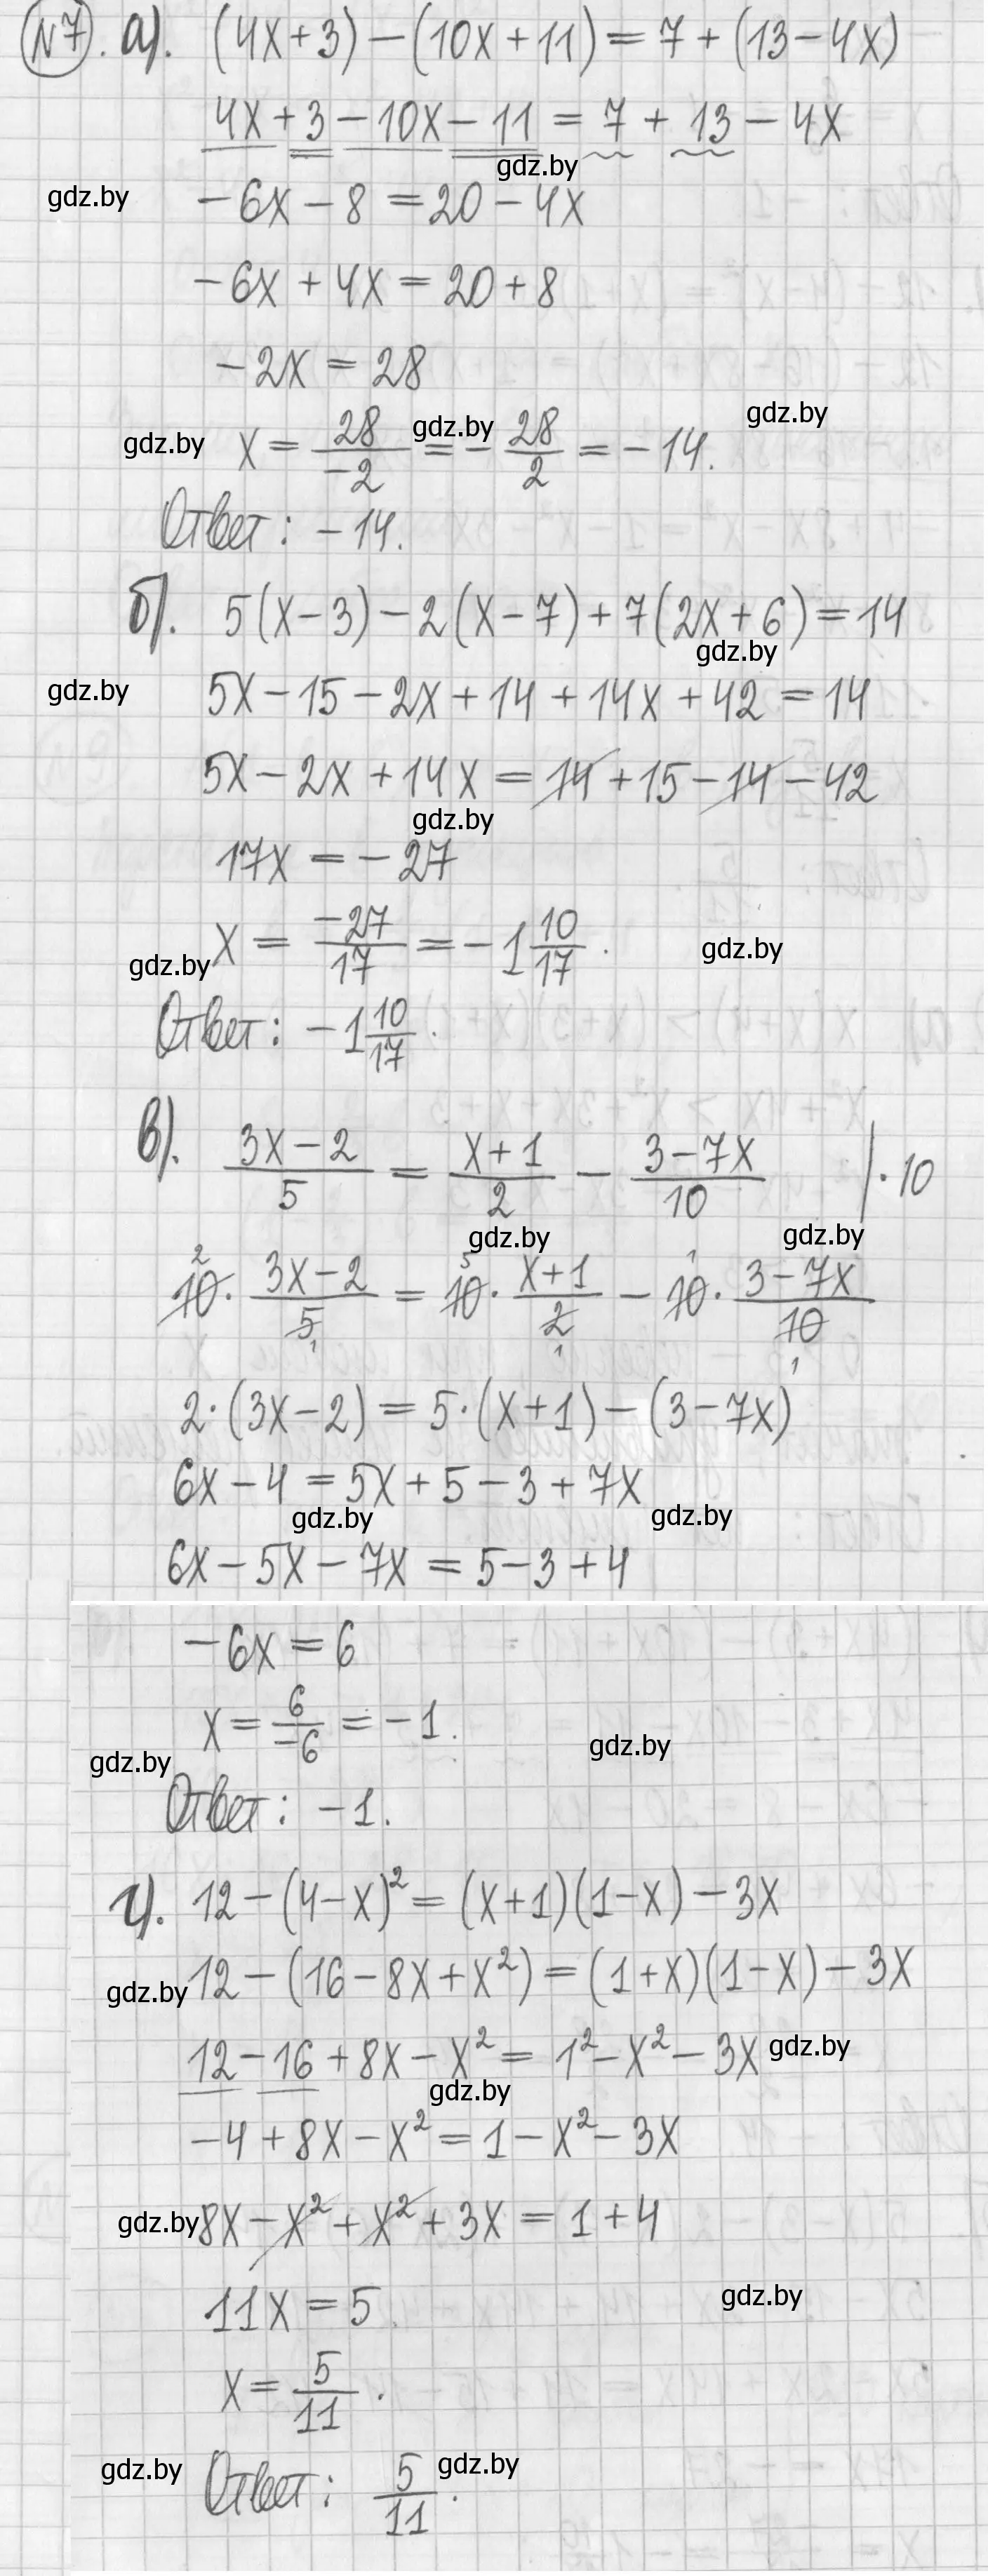 №7. а). (4x+3)−(10x+11)=7+(13−4x)
4x+3−10x−11=7+13−4x
gdz.by
gdz.by −6x−8=20−4x
−6x+4x=20+8
−2x=28
gdz.by
gdz.by x=28/−2 gdz.by =−28/2=−14.
Ответ: −14.
б). 5(x−3)−2(x−7)+7(2x+6)=14
gdz.by
gdz.by 5x−15−2x+14+14x+42=14
5x−2x+14x=14+15−14−42
gdz.by
17x=−27
gdz.by x=−27/17=−1 10/17. gdz.by
Ответ: −1 10/17.
в). (3x−2)/5=(x+1)/2−(3−7x)/10 |·10
gdz.by gdz.by
2 5 1
10·(3x−2)/5=10·(x+1)/2−10·(3−7x)/10
1 1 1
2·(3x−2)=5·(x+1)−(3−7x)
6x−4=5x+5−3+7x
gdz.by gdz.by
6x−5x−7x=5−3+4
−6x=6
x=6/−6=−1.
gdz.by gdz.by
Ответ: −1.
г). 12−(4−x)²=(x+1)(1−x)−3x
gdz.by 12−(16−8x+x²)=(1+x)(1−x)−3x
12−16+8x−x²=1²−x²−3x gdz.by
gdz.by
−4+8x−x²=1−x²−3x
gdz.by 8x−x²+x²+3x=1+4
gdz.by
11x=5
x=5/11.
gdz.by Ответ: 5/11. gdz.by